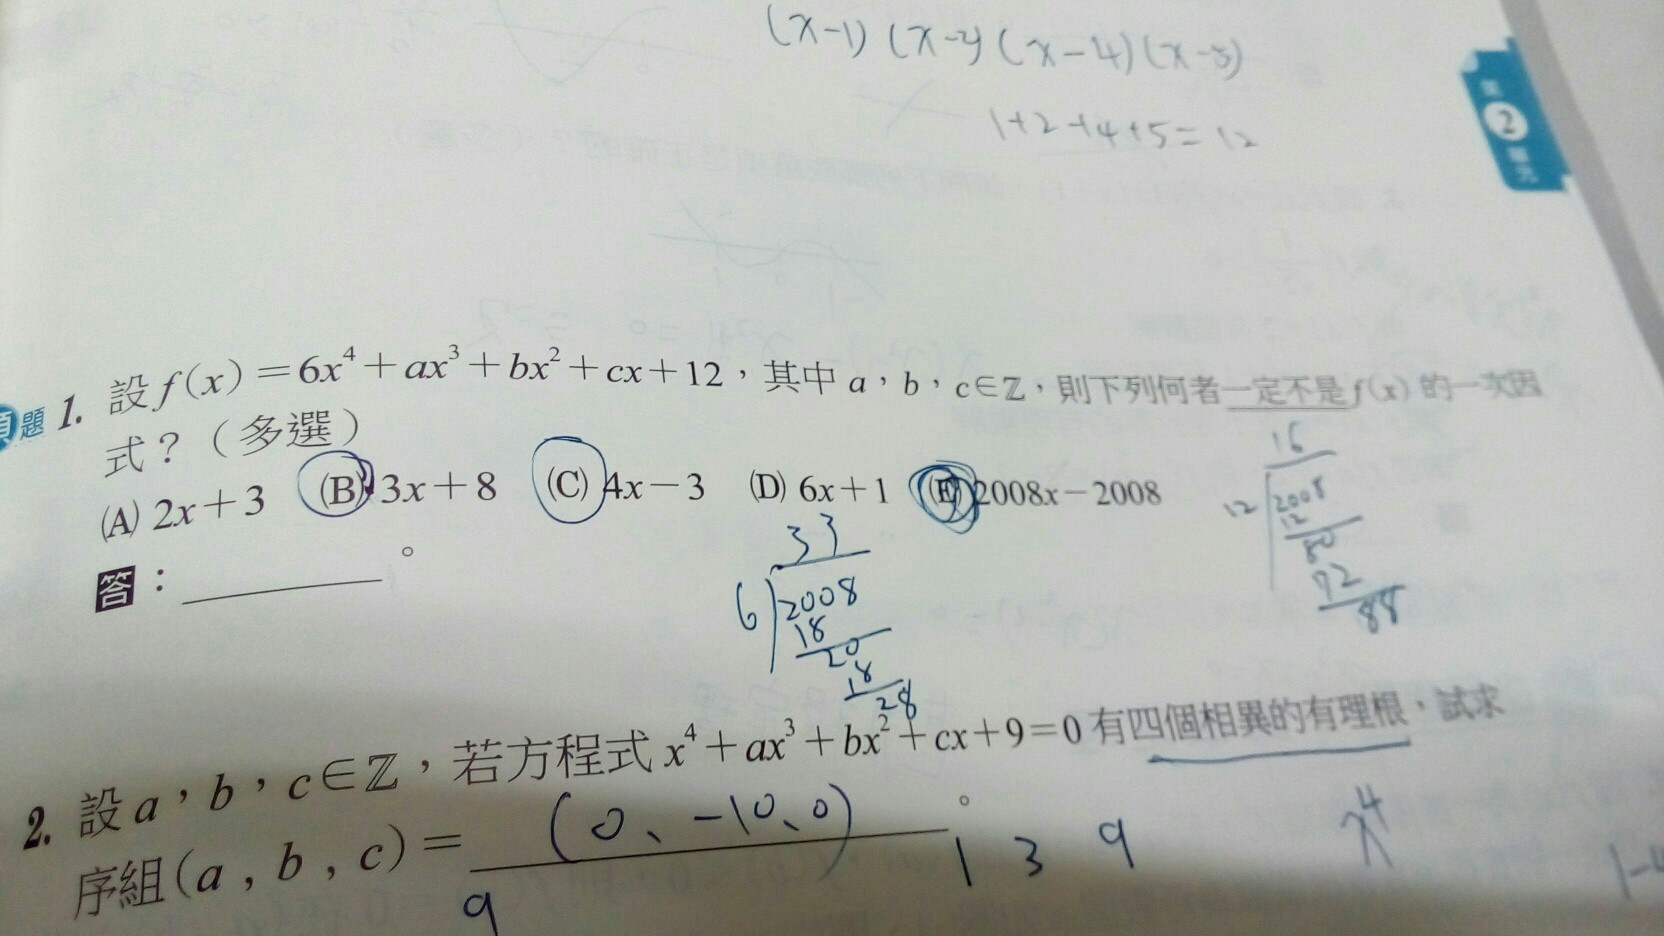 (x-1) (x-2) (x-4)(x-5)
1+2+4+5=12
2
題 1. 設 f(x)=6x⁴+ax³+bx²+cx+12，其中 a，b，c∈ℤ，則下列何者一定不是 f(x) 的一次因
式？（多選）
(A) 2x+3 (B) 3x+8 (C) 4x-3 (D) 6x+1 (E) 2008x-2008
答：。
33
6 2008
18
20
18
28
16
12 2008
12
80
72
88
2. 設 a，b，c∈ℤ，若方程式 x⁴+ax³+bx²+cx+9=0 有四個相異的有理根，試求
序組(a , b , c)= (0、-10、0)。
1 3 9
x⁴
9